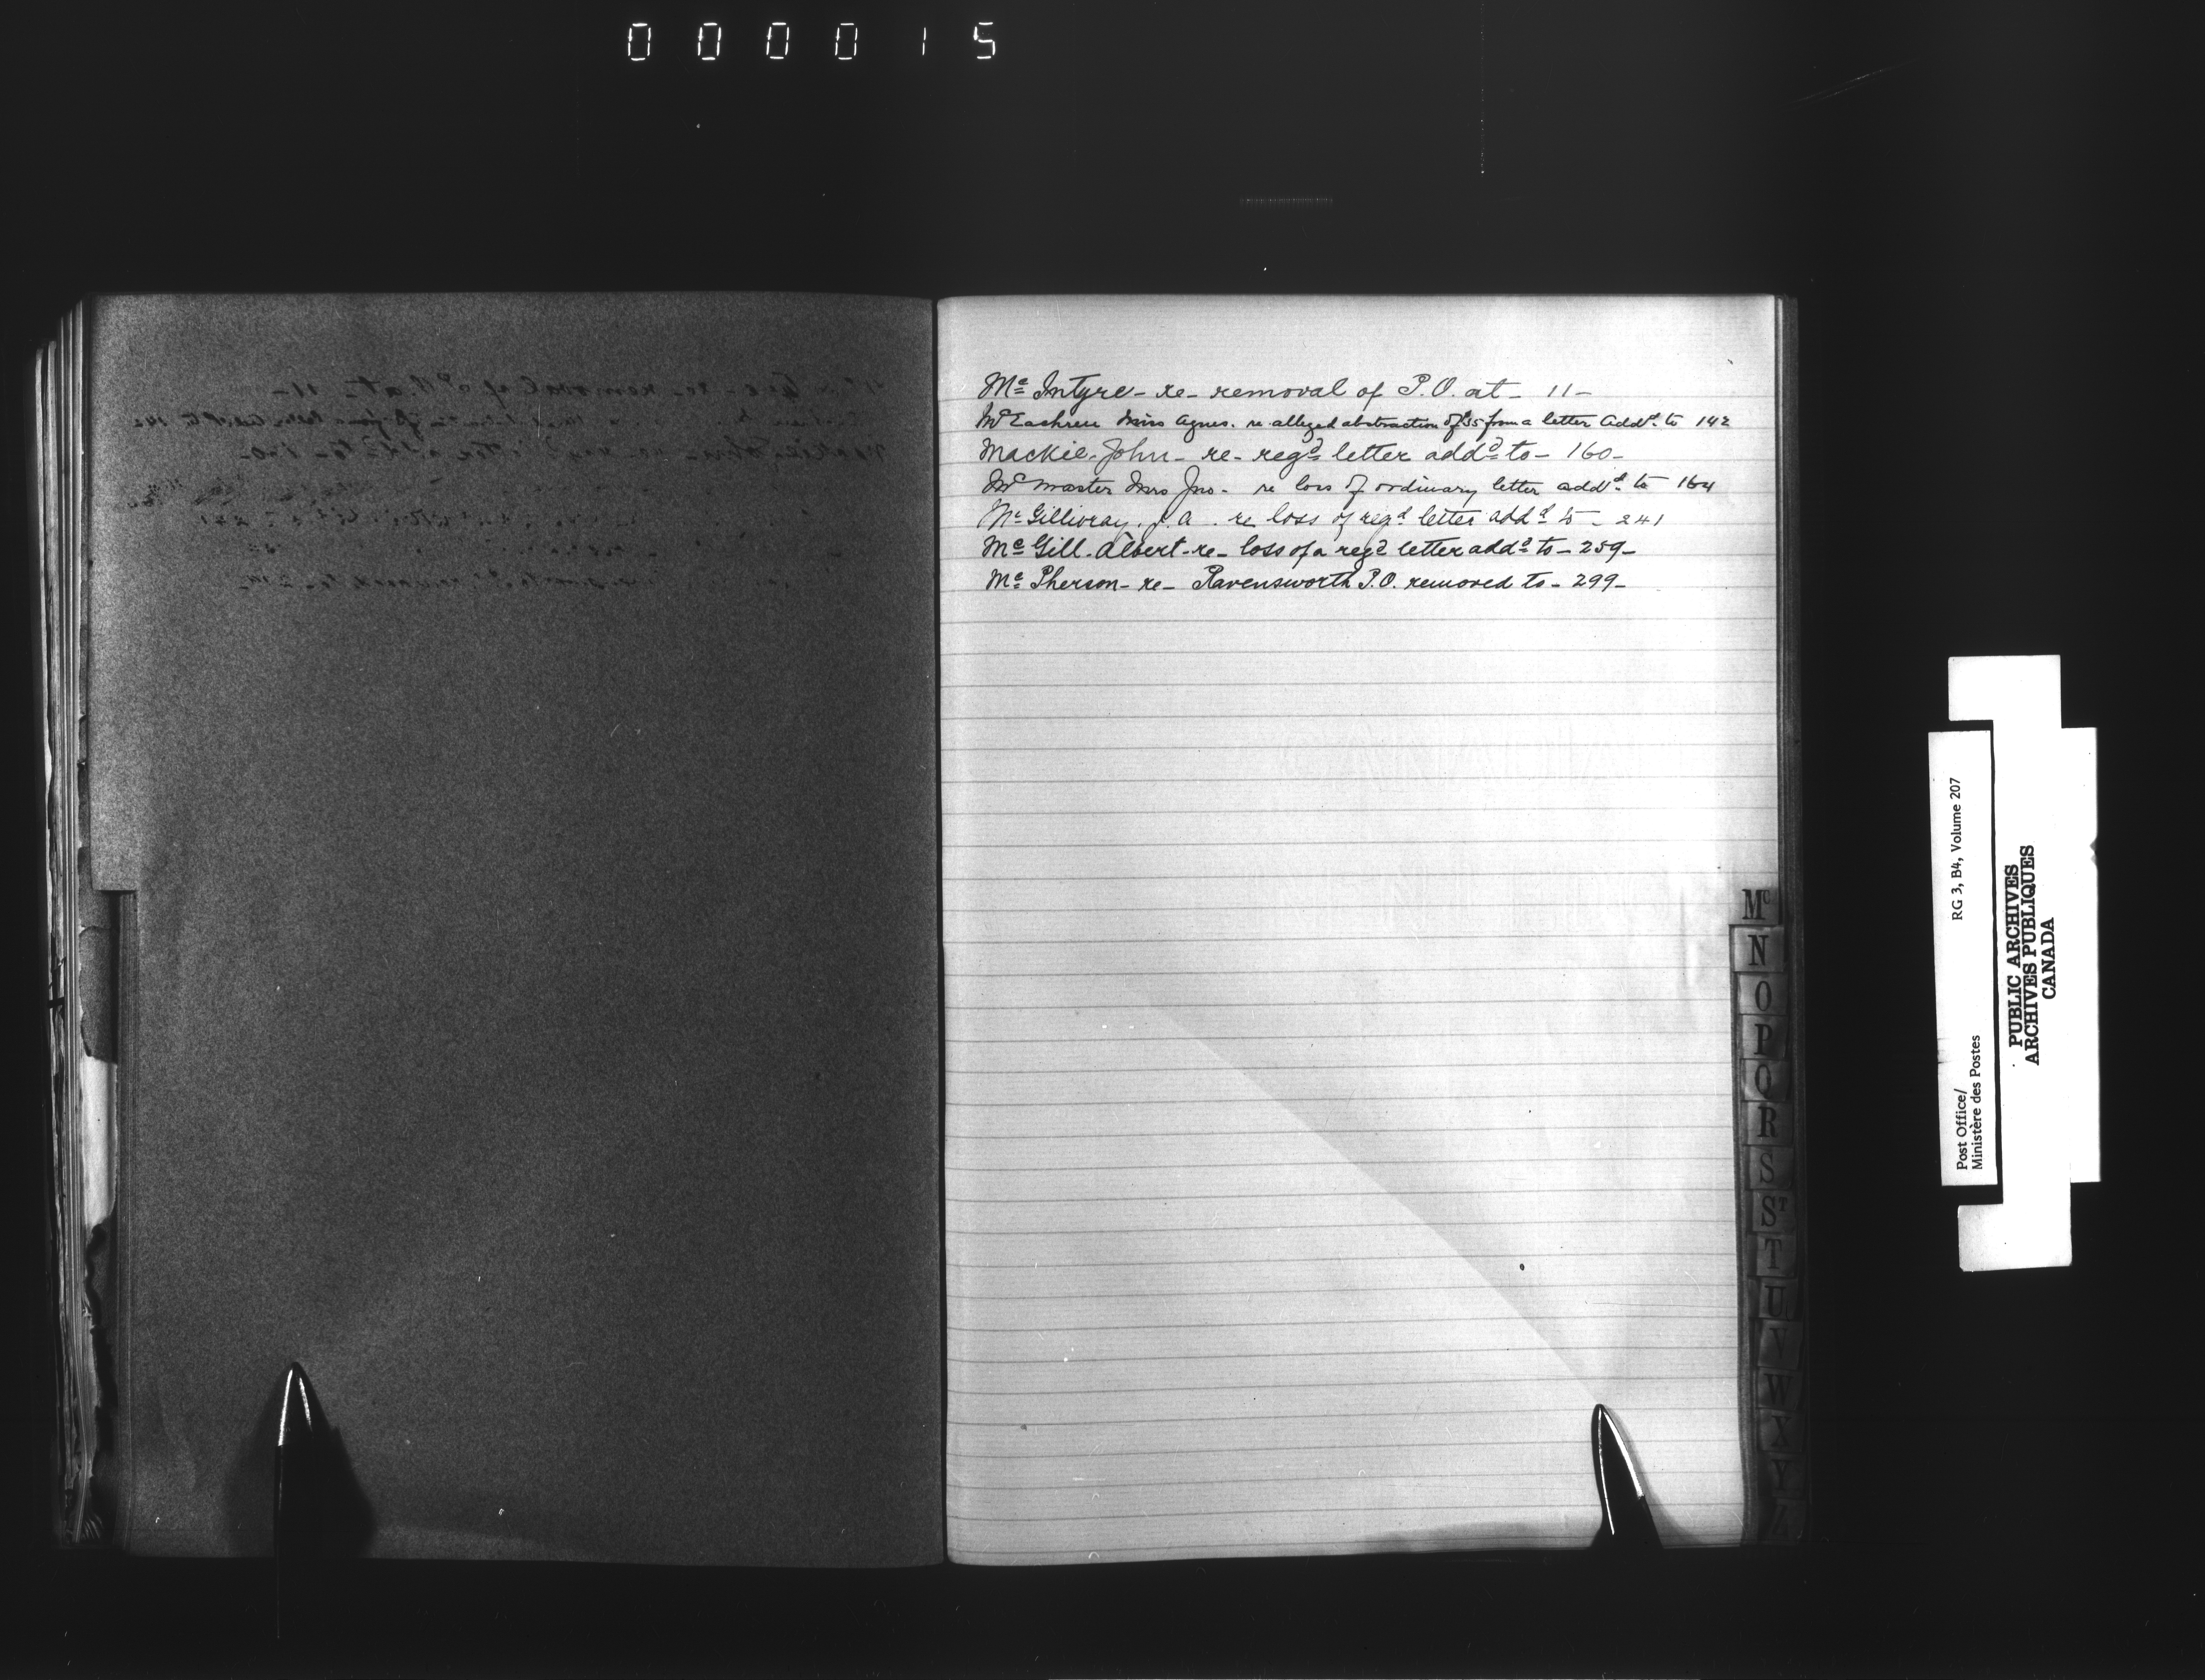 000015
Mc Intyre - re - removal of P.O. at - 11 -
McEachren Miss Agnes. re alleged abstraction of $5 from a letter Addd. to 142
Mackie, John - re - regd letter addd to - 160 -
McMaster Mrs Jno - re loss of ordinary letter addd. to 164
McGillivray. J. A. re loss of regd letter addd to - 241
Mc Gill. Albert - re - loss of a regd letter addd to - 259 -
Mc Pherson - re - Ravensworth P.O. removed to - 299 -
Mc
N
O
P
Q
R
S
ST
T
U
V
W
X
Y
Z
Post Office/ RG 3, B4, Volume 207
Ministère des Postes
PUBLIC ARCHIVES
ARCHIVES PUBLIQUES
CANADA